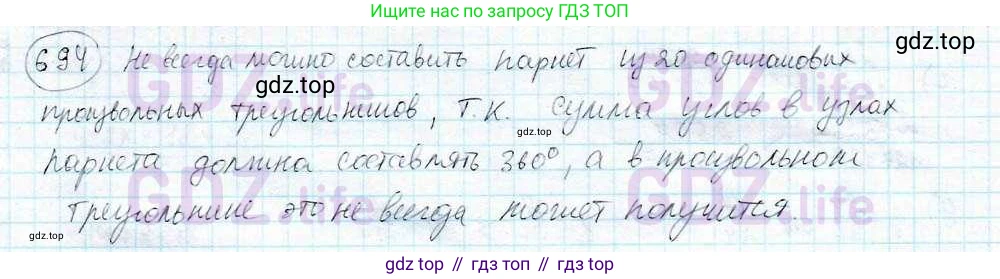 Ищите нас по запросу ГДЗ ТОП
694 Не всегда можно составить паркет из 20 одинаковых
gdz.top
gdz.top
произвольных треугольников, т.к. сумма углов в узлах
gdz.top
паркета должна составлять 360°, а в произвольном
треугольнике это не всегда может получится.
gdz.top
GDZ.life
GDZ.life
GDZ.life
GDZ.life
gdz.top // gdz.top // gdz.top